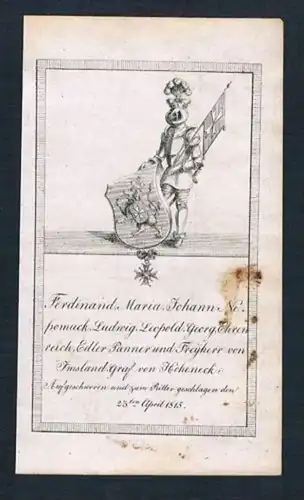 Ferdinand Maria Johann Ne,
pomuck Ludwig Leopold Georg Ehren
reich, Edler Panner und Freyherr von
Imsland Graf von Hoheneck.
Aufgeschworen und zum Ritter geschlagen den
23ten April 1815.